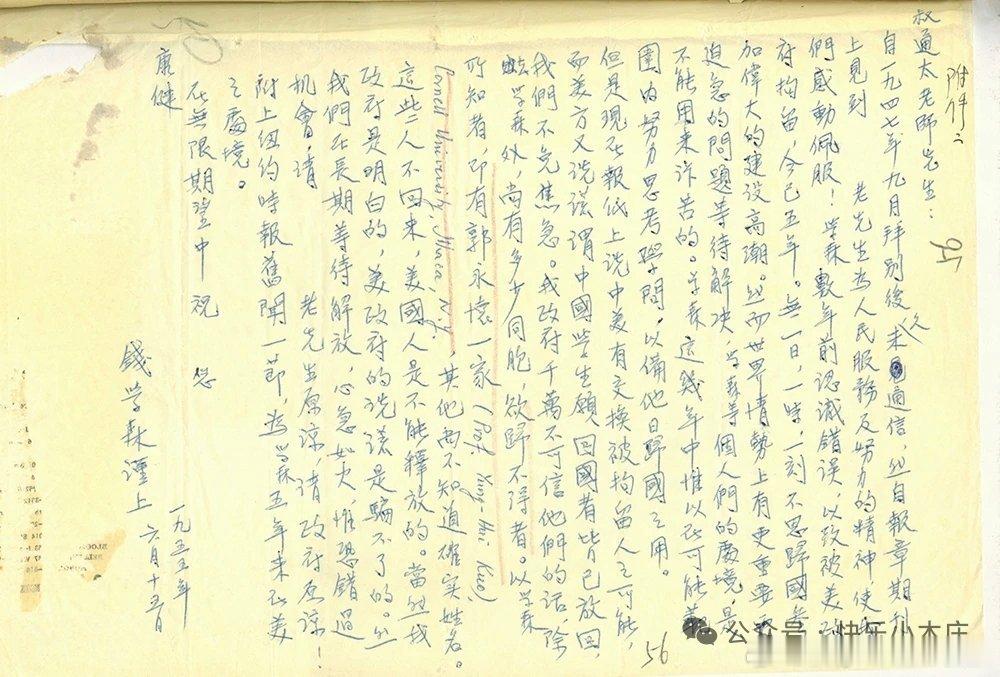 附件二
叔通太老師先生：
自一九四七年九月拜別後久未通信，然自報章期刊
上見到 老先生为人民服務及努力的精神使我
們感動佩服！学森數年前認識錯误，以致被美政
府拘留，今已五年。無一日，一時，一刻不思歸國参
加偉大的建设高潮。然而世界情勢上有更重要更
迫急的問題等待解决，学森等個人們的處境，是
不能用来訴苦的。学森這幾年中惟以在可能範
圍内努力思考學問，以備他日歸國之用。
但是現在報紙上说中美有交換被拘留人之可能，
而美方又说謊謂中國学生願回國者皆已放回，
我們不免焦急。我政府千萬不可信他們的话，除
学森外，尚有多少同胞，欲歸不得者。以学森
所知者，即有郭永懷一家（Prof. Yung-Huai Kuo,
Cornell University, Ithaca, N.Y.），其他尚不知道確实姓名。
這些人不回来，美國人是不能釋放的。當然我
政府是明白的，美政府的说謊是騙不了的。然
我們在長期等待解放，心急如火，惟恐錯過
機會，请 老先生原諒，请政府原諒！
附上纽约時報舊聞一節，為学森五年来在美
之處境。
在無限期望中祝 您
康健
錢学森謹上
一九五五年
六月十五日
95
56
公众号·快乐小木庄